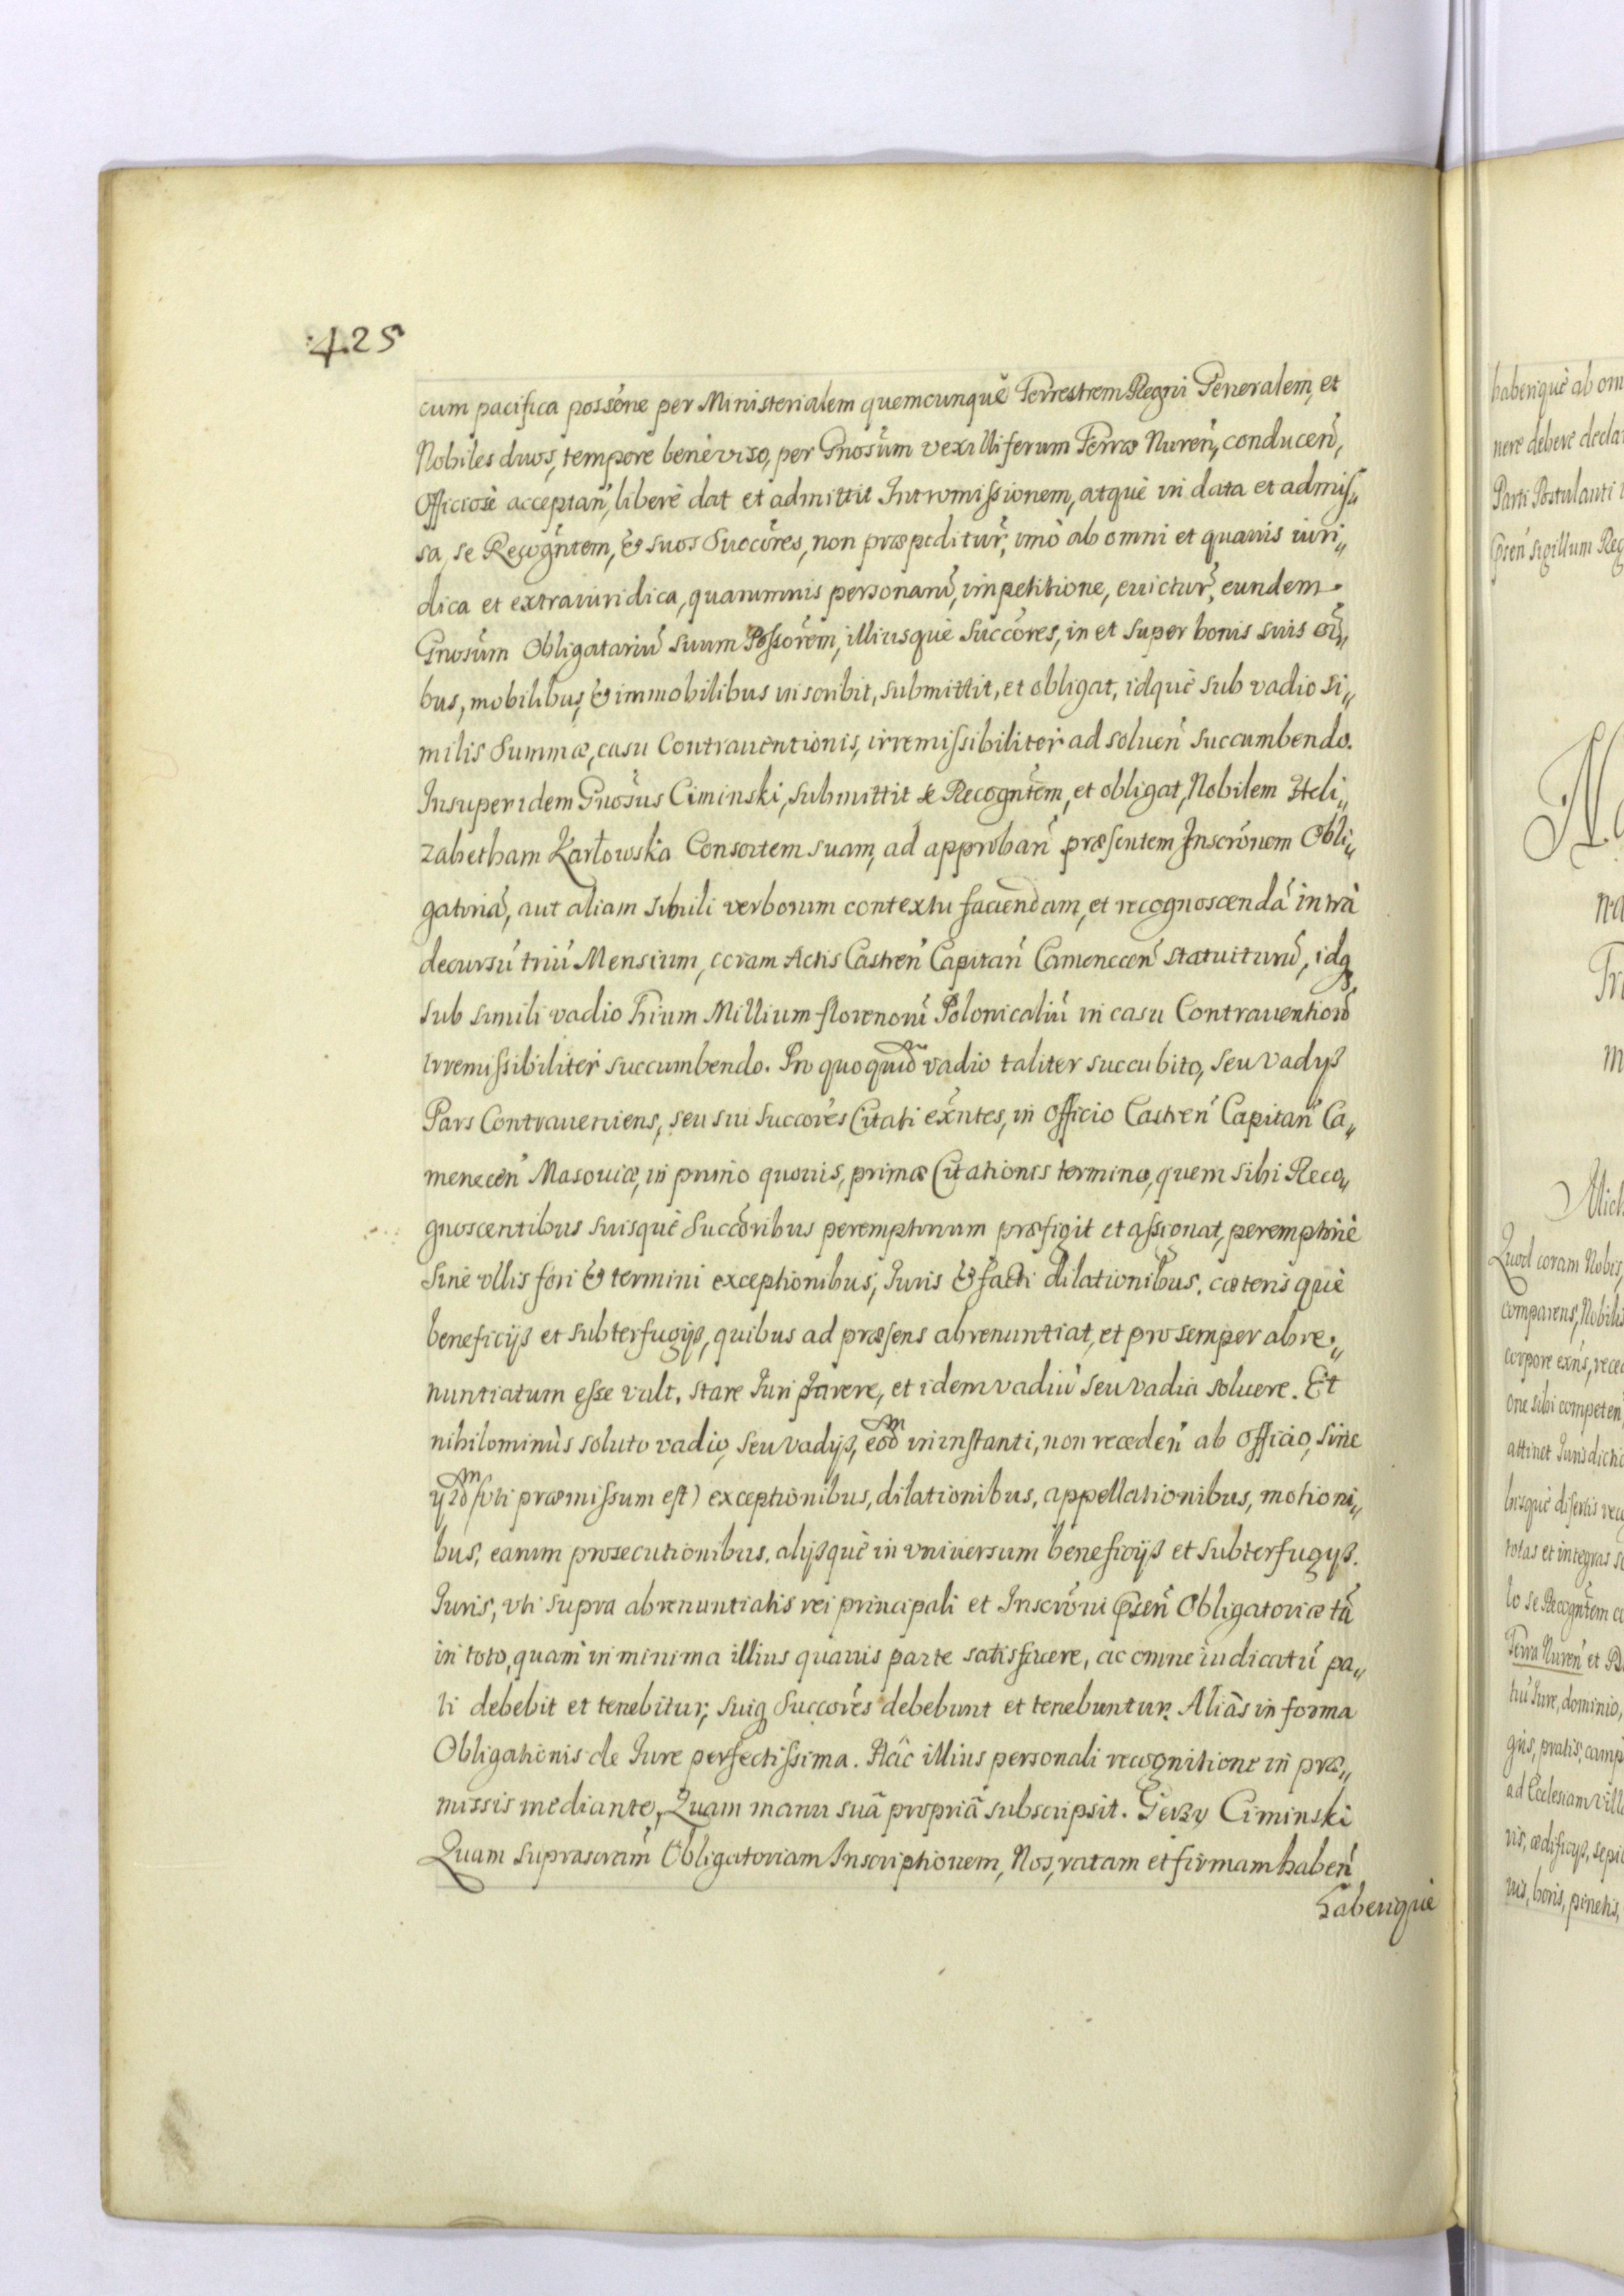 425
cum pacifica possẽne per Ministerialem quemcunquè Terrestrem Regni Generalem, et
Nobiles duos, tempore benè viso, per Gnosũm vexilliferum Terræ Nureñ, conduceñ,
Officiosè acceptañ, liberè dat et admittit Intromissionem, atquè in data et admis„
sa, se Recogñtem, & suos Succõres, non præpeditur̃, imò ab omni et quauis iuri„
dica et extraiuridica, quarumuis personarũ, impetitione, euictur̃, eundem
Gnosũm Obligatariũ suum Possorẽm, illiusquè Succõres, in et super bonis suis oĩ„
bus, mobilibus, & immobilibus inscribit, submittit, et obligat, idquè sub vadio si„
milis Summæ, casu Contrauentionis, irremissibiliter ad solueñ succumbendo.
Insuper idem Gnosũs Ciminski, submittit se Recogñtem, et obligat, Nobilem Heli„
zabetham Karłowska Consortem suam, ad approbañ præsentem Inscrõnem Obli„
gatoriã, aut aliam simili verborum contextu faciendam, et recognoscendã intrà
decursũ triũ Mensium, coram Actis Castreñ Capitañ Camenecceñ statuiturũ, idq
sub simili vadio Trium Millium florenorũ Polonicaliũ in casu Contrauentioñ
irremissibiliter succumbendo. Pro quoquid͠m vadio taliter succubito, seu vadijs
Pars Contraueniens, seu sui Succorẽs Citati exñtes, in Officio Castreñ Capitañ Ca„
meneceñ Masouiæ, in primo quouis, primæ Citationis termino, quem sibi Reco„
gnoscentibus suisquè Succõribus peremptorium præfigit et assignat, peremptoriè
Sine vllis fori & termini exceptionibus, Iuris & facti dilationibus, cæterisquè
beneficijs et subterfugijs, quibus ad præsens abrenuntiat, et pro semper abre„
nuntiatum esse vult, stare Iuri parere, et idem vadiũ seu vadia soluere. Et
nihilominùs soluto vadio, seu vadijs, eod͠m in instanti, non recedeñ ab Officio, sine
ijsd͠m (vti præmissum est) exceptionibus, dilationibus, appellationibus, motioni„
bus, earum prosecutionibus, alijsquè in vniuersum beneficijs et subterfugijs
Iuris, vti supra abrenuntiatis rei principali et Inscrõni p̃señ Obligatoriæ tã
in toto, quam in minima illius quauis parte satisfacere, ac omne iudicatũ pa„
ti debebit et tenebitur, suiq Succorẽs debebunt et tenebuntur. Aliàs in forma
Obligationis de Iure perfectissima. Hàc illius personali recognitione in præ„
missis mediante, Quam manu suâ propriâ subscripsit. Jerzy Ciminski
Quam suprascrãm Obligatoriam Inscriptionem, Nos, ratam et firmam habeñ
haberiquè
haberiquè ab om
nere debere decla
Parti Postulanti
p̃señ sigillum Reg
Quod coram Nobis,
comparens, Nobilis
corpore exñs, rece
one sibi competen
attinet Iurisdictio
bisquè disertis
totas et integras
lo se Recogñtem
Terra Nureñ et
Iure, dominio,
pratis, camp
ad Ecclesiam Vill
ris, ædificijs, sepi
pinetis,